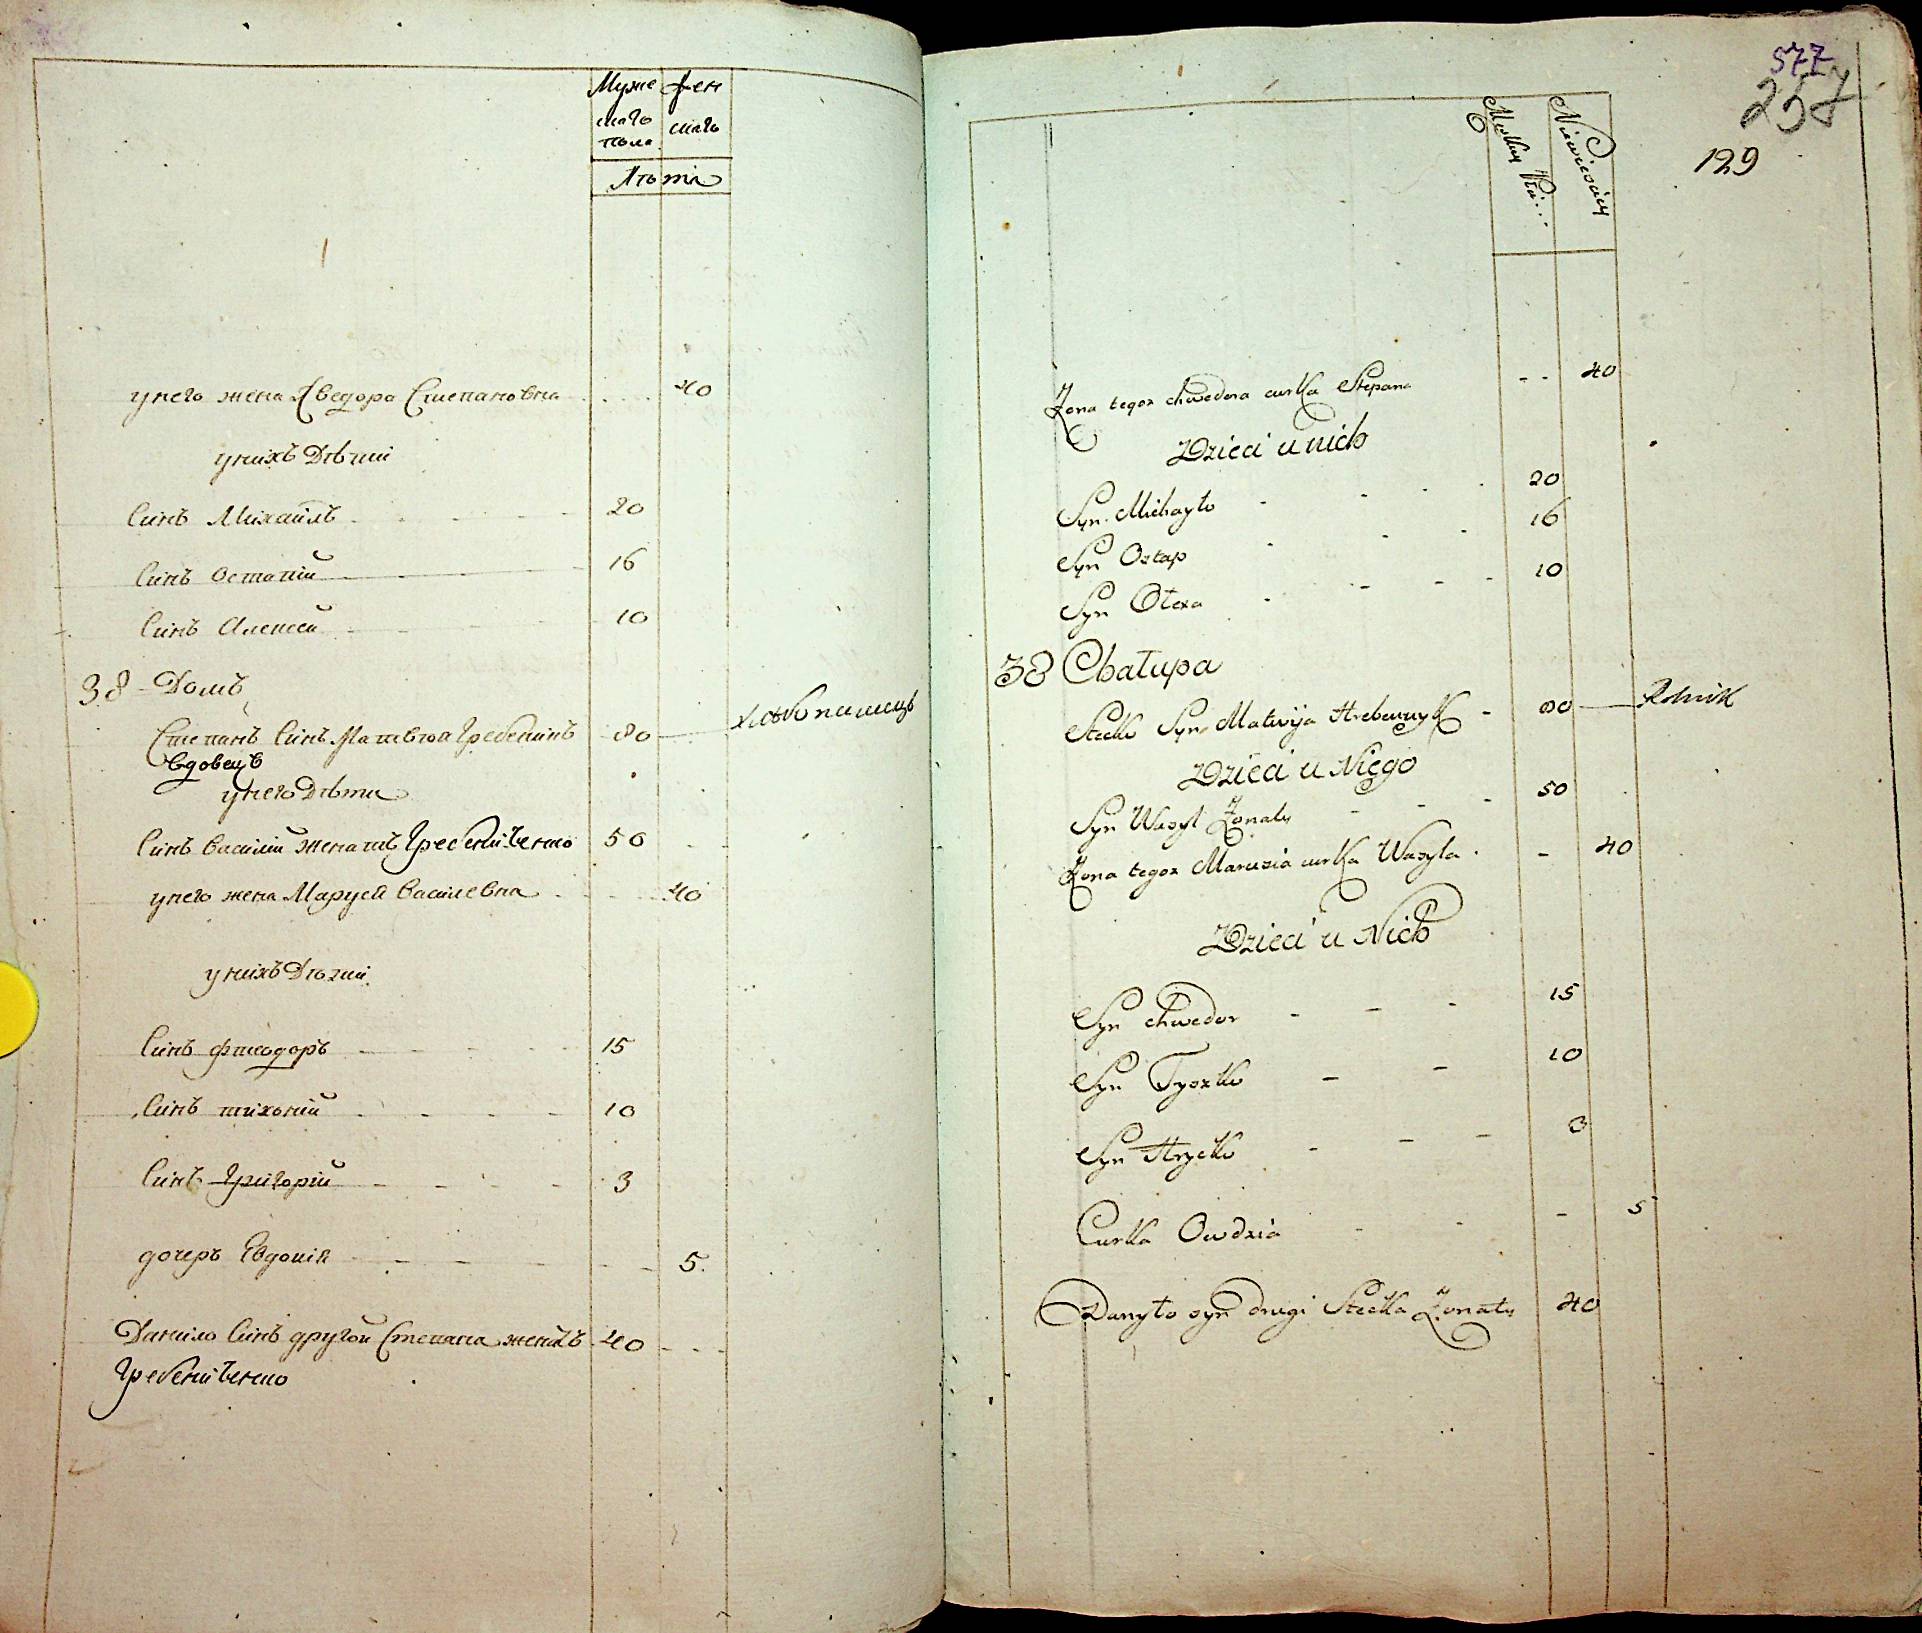 Муже Жен
скаго скаго
пола
Лѣта
у него жена Хведора Степановна 40
у нихъ Дѣти
Синъ Михаилъ 20
Синъ Остапій 16
Синъ Алексей 10
38 Домъ
Степанъ Синъ Матвѣя Гребеникъ 80 хлѣбопашецъ
вдовецъ
у него Дѣти
Синъ Василий женатъ 50
у него жена Маруся Василевна 40
у нихъ Дѣти
Синъ Фтеодоръ 15
Синъ тихоній 10
Синъ Григорій 3
дочеръ Евдокія 5
Данило Синъ другой Степана женатъ 40
577
257
129
Niewieściey
Zona tegoz chwedora curka Stepana 40
Dzieci u nich
Syn Michayło 20
Syn Ostap 16
Syn Ołexa 10
38 Chałupa
Stecko Syn Matwija Hrebennyk 80 Rolnik
Dzieci u Niego
Syn Wasyl Zonaty 50
Zona tegoz Marusia curka Wasyla 40
Dzieci u Nich
Syn chwedor 15
Syn Tyszko 10
Syn Hrycko 3
Curka Owdzia 5
Danyło syn drugi Stecka Zonaty 40